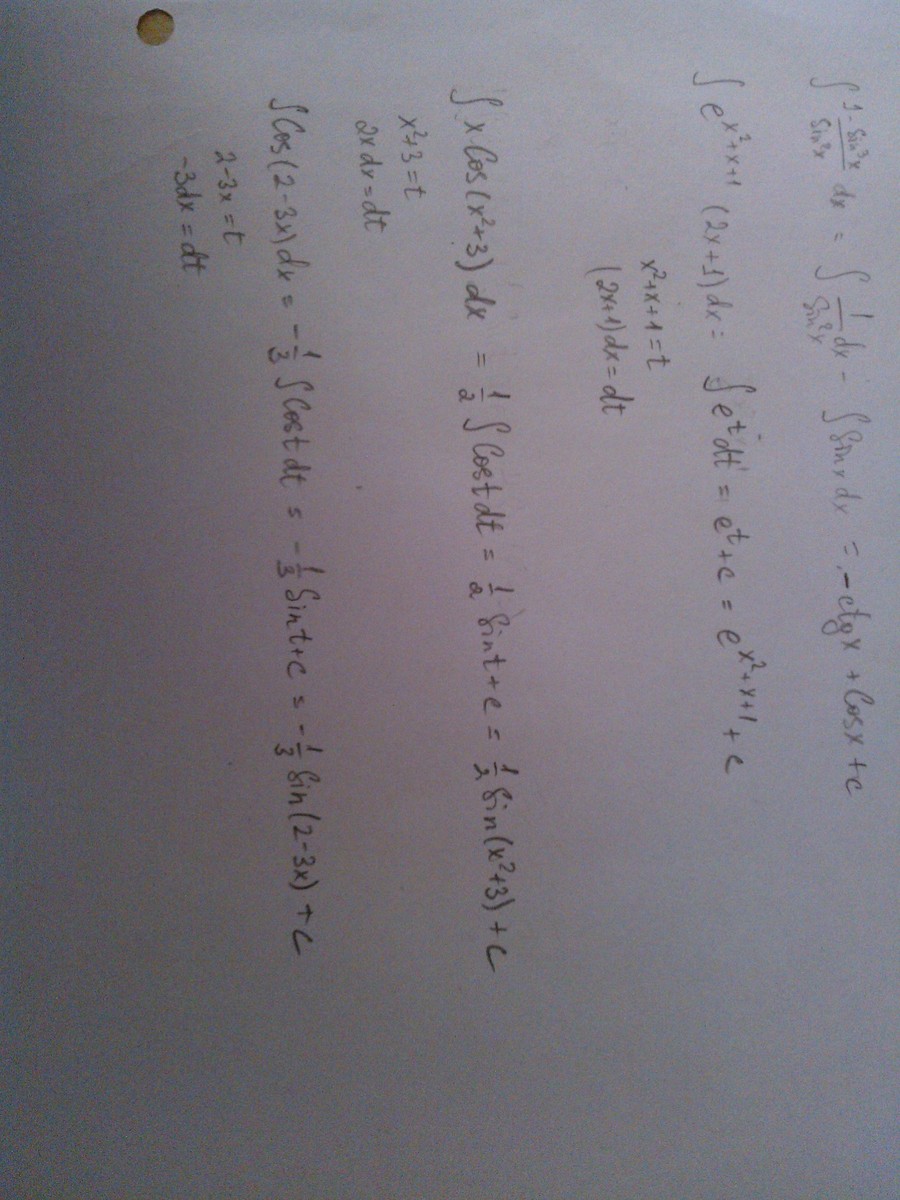 ∫ (1 - Sin³x)/(Sin²x) dx = ∫ 1/(Sin²x) dx - ∫ Sin x dx = -ctg x + Cos x + c
∫ e^(x²+x+1) (2x+1) dx = ∫ e^t dt = e^t + c = e^(x²+x+1) + c
x²+x+1 = t
(2x+1) dx = dt
∫ x Cos(x²+3) dx = 1/2 ∫ Cos t dt = 1/2 Sin t + c = 1/2 Sin(x²+3) + c
x²+3 = t
2x dx = dt
∫ Cos(2-3x) dx = -1/3 ∫ Cos t dt = -1/3 Sin t + c = -1/3 Sin(2-3x) + c
2-3x = t
-3dx = dt